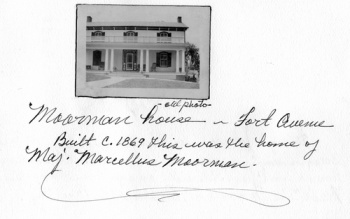 old photo
Moorman house ~ Fort Avenue
Built c. 1869 this was the home of
Maj. Marcellus Moorman.